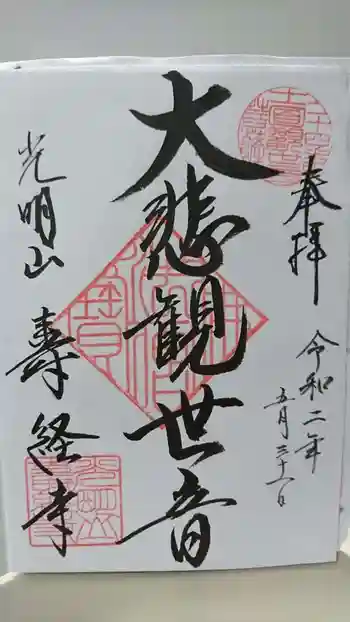 奉拝
令和二年
五月三十一日
大悲觀世音
光明山
壽経寺